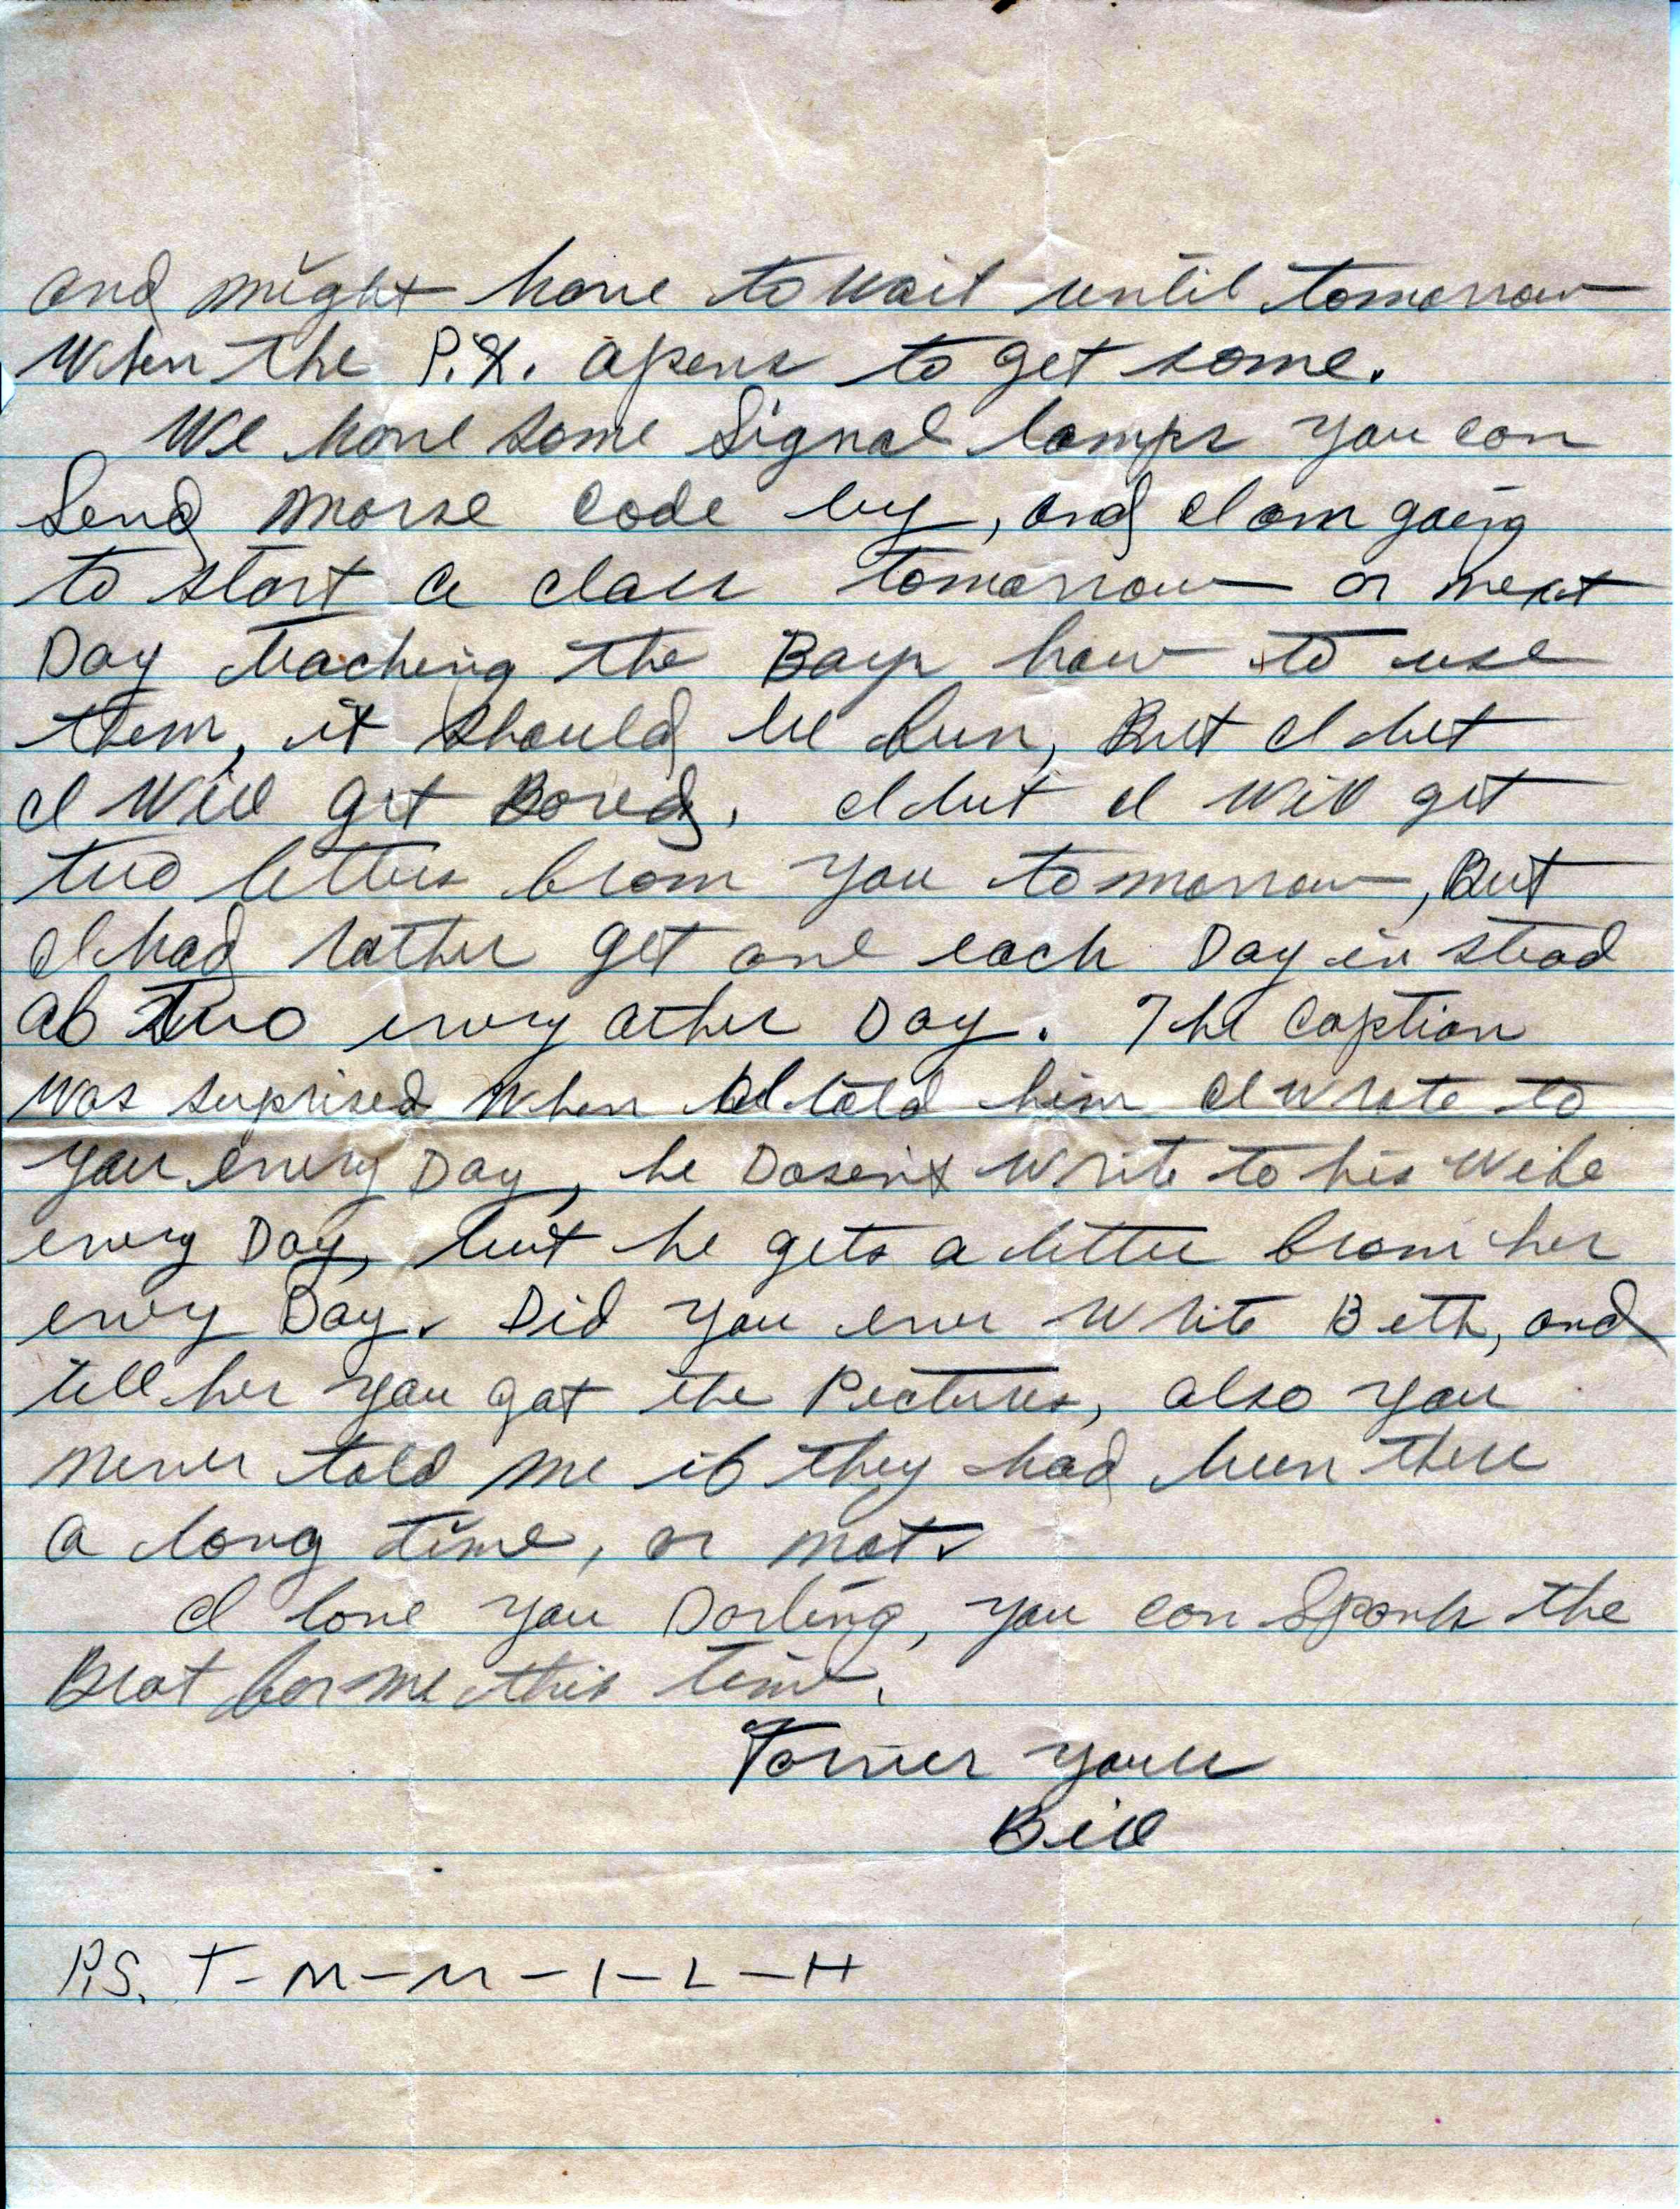 and might have to wait until tomorrow
When the P.X. opens to get some.
We have some Signal lamps you can
Send morse code by, and I am going
to start a class tomorrow or next
Day teaching the Boys how to use
them, it should be fun, But I bet
I will get Bored. I bet I will get
two letters from you tomorrow, But
I had rather get one each Day in stead
of two every other Day. The Captian
was suprised when I told him I wrote to
you every Day, he Dosen't write to his wife
every Day, but he gets a letter from her
every Day. Did you ever write Beth, and
tell her you got the Pictures, also you
never told me if they had been there
a long time, or not.
I love you Darling, you can Spank the
Brat for me this time.
Forever yours
Bill
P.S. T-M-M-I-L-H